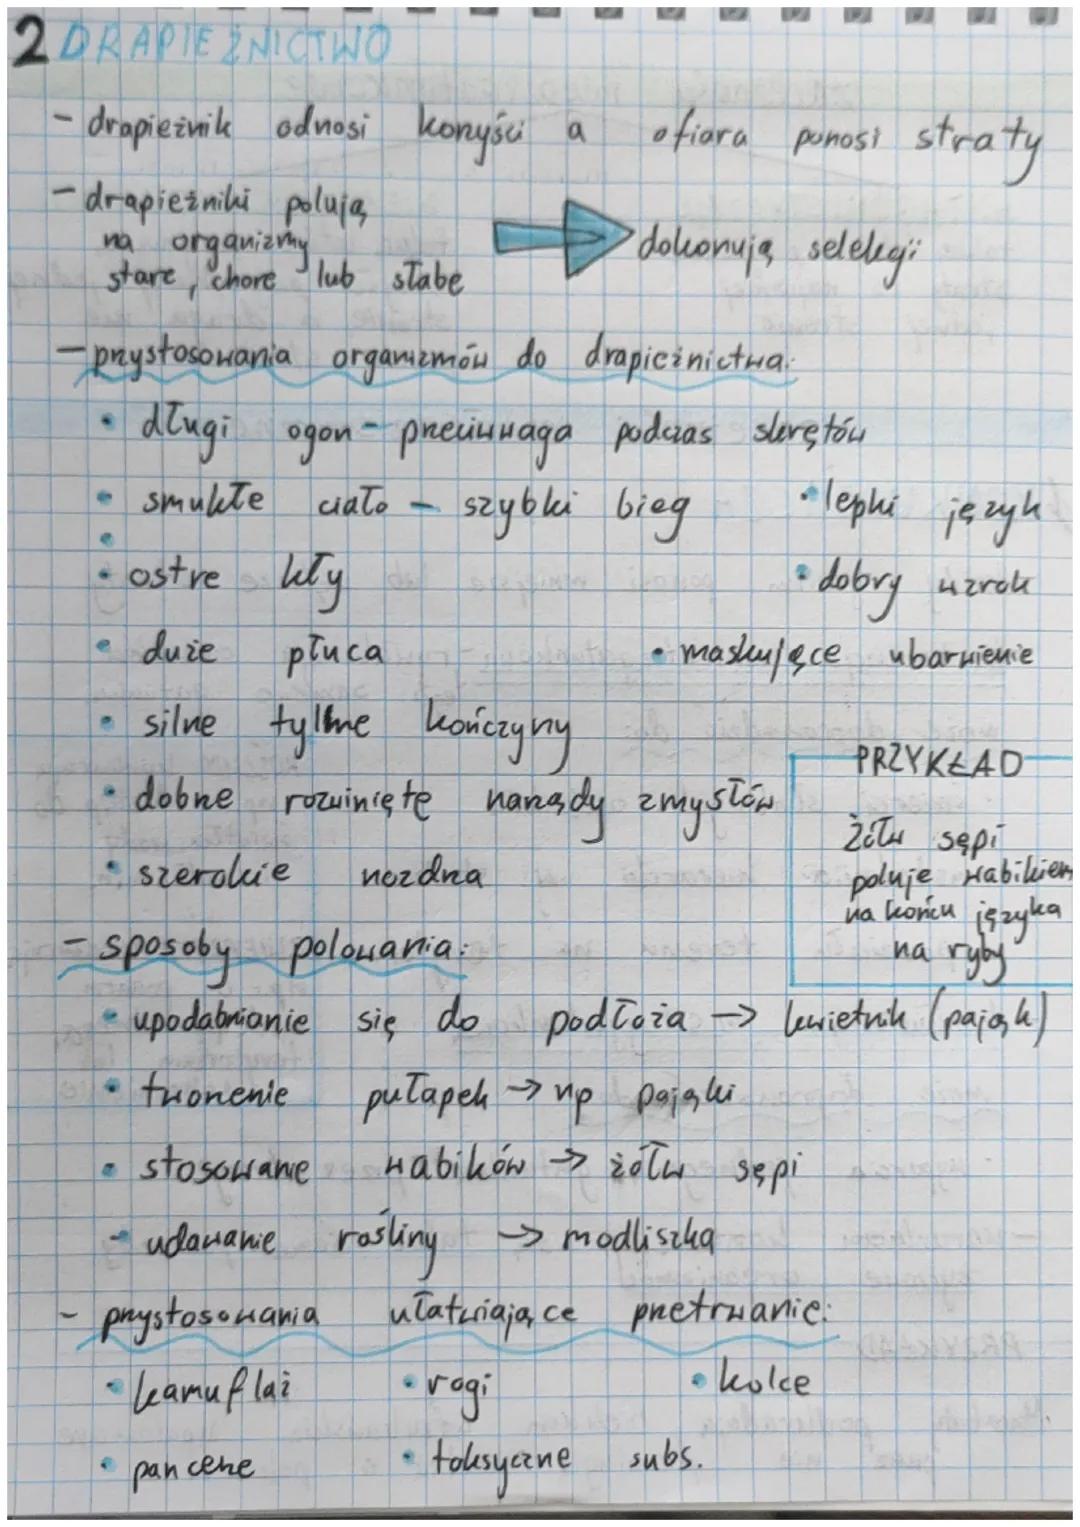 2 DRAPIEŻNICTWO
- drapieżnik odnosi korzyści a ofiara ponosi straty
- drapieżniki polują
na organizmy
stare, chore lub słabe
dokonują selekcji
- przystosowania organizmów do drapieżnictwa:
• długi ogon - przeciwwaga podczas skrętów
• smukłe ciało - szybki bieg
• lepki język
• ostre kły
• dobry wzrok
• duże płuca
• maskujące ubarwienie
• silne tylne kończyny
• dobrze rozwinięte narządy zmysłów
• szerokie nozdrza
PRZYKŁAD
Żółw sępi
poluje wabikiem
na końcu języka
na ryby
- sposoby polowania:
• upodabnianie się do podłoża → kwietnik (pająk)
• tworzenie pułapek → np pająki
• stosowanie wabików → żółw sępi
• udawanie rośliny → modliszka
- przystosowania ułatwiające przetrwanie:
• kamuflaż • rogi • kolce
• pancerze • toksyczne subs.